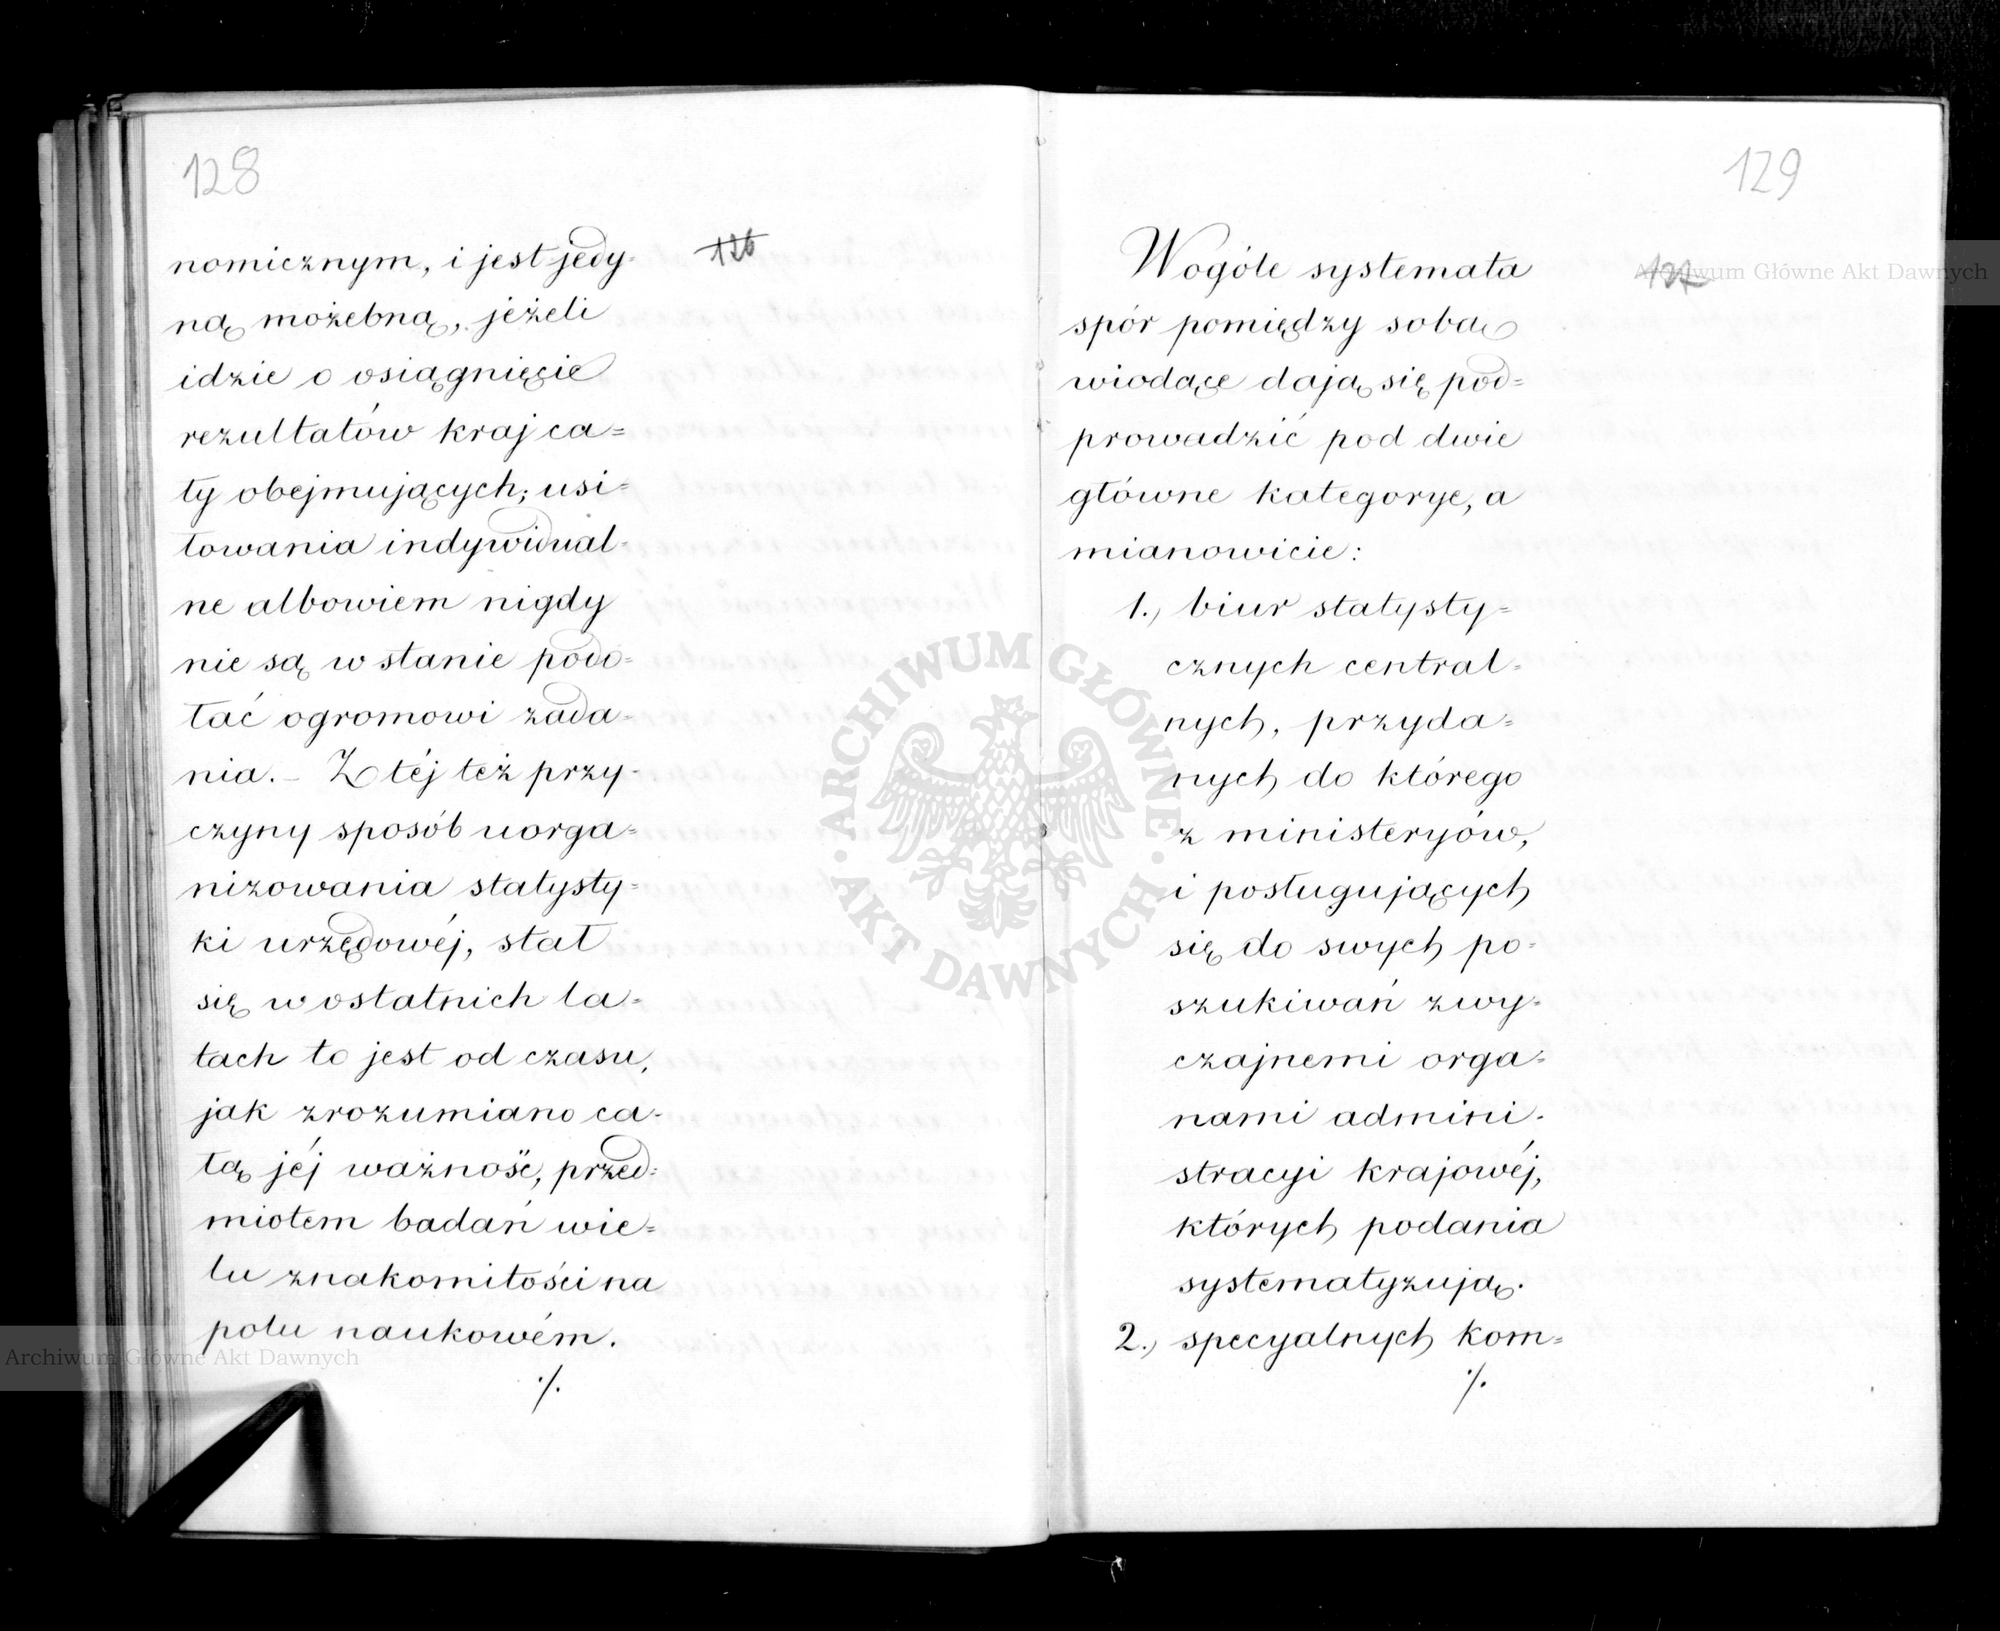 128
126
nomicznym, i jest jedy-
ną możebną, jeżeli
idzie o osiągnięcie
rezultatów kraj ca=
ły obejmujących; usi=
łowania indywidual-
ne albowiem nigdy
nie są w stanie podo=
łać ogromowi zada=
nia. – Z téj też przy-
czyny sposób uorga=
nizowania statysty=
ki urzędowéj, stał
się w ostatnich la=
tach to jest od czasu,
jak zrozumiano ca-
łą jéj ważność, przed=
miotem badań wie=
lu znakomitości na
polu naukowém.
./.
129
127
Wogóle systemata
spór pomiędzy sobą
wiodące dają się pod=
prowadzić pod dwie
główne kategorye, a
mianowicie:
1., biur statysty=
cznych central=
nych, przyda=
nych do którego
z ministeryów,
i posługujących
się do swych po=
szukiwań zwy=
czajnemi orga=
nami admini-
stracyi krajowéj,
których podania
systematyzują.
2., specyalnych kom=
./.
ARCHIWUM GŁÓWNE AKT DAWNYCH
Archiwum Główne Akt Dawnych
Archiwum Główne Akt Dawnych